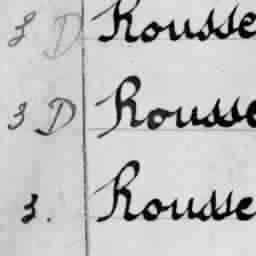 3 D Rousse
3 D Rousse
3. Rousse